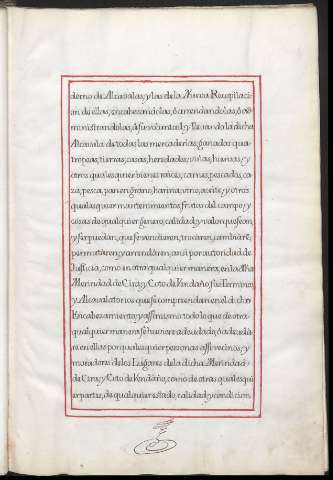 derno de Alcavalas, y las de la Nueva Recopilaci-
on de ellas, encabezandolas, ò arrendandolas, ò ad-
ministrandolas, à su voluntad, y llevando la dicha
Alcavala de todas las mercaderias, ganados qua-
tropeas, tierras, casas, heredades, viñas, huertas, y
otros qualesquier bienes raices, carnes, pescados, ca-
za, pesca, pan en grano, harina, vino, aceite, y otros
qualesquier mantenimientos, frutos del campo, y
cosas de qualquier genero, calidad, y valor que sean,
y ser puedan, que se vendieren, trocaren, cambiarẽ,
permutaren, y arrendaren, assi por autoridad de
Justicia, como en otra qualquier manera, en la dha
Merindad de y Coto de su Termino,
y Alcavalatorios que se comprenden en el dicho
Encabezamiento, y assimismo todo lo que de otra
qualquier manera se huviere adeudado, ò adeudà-
re en ellas por qualesquier personas assi vecinos, y
moradores de los Lugares de la dicha Merindad
de y Coto de como de otras qualesqui-
er partes, de qualquier estado, calidad, y condicion,